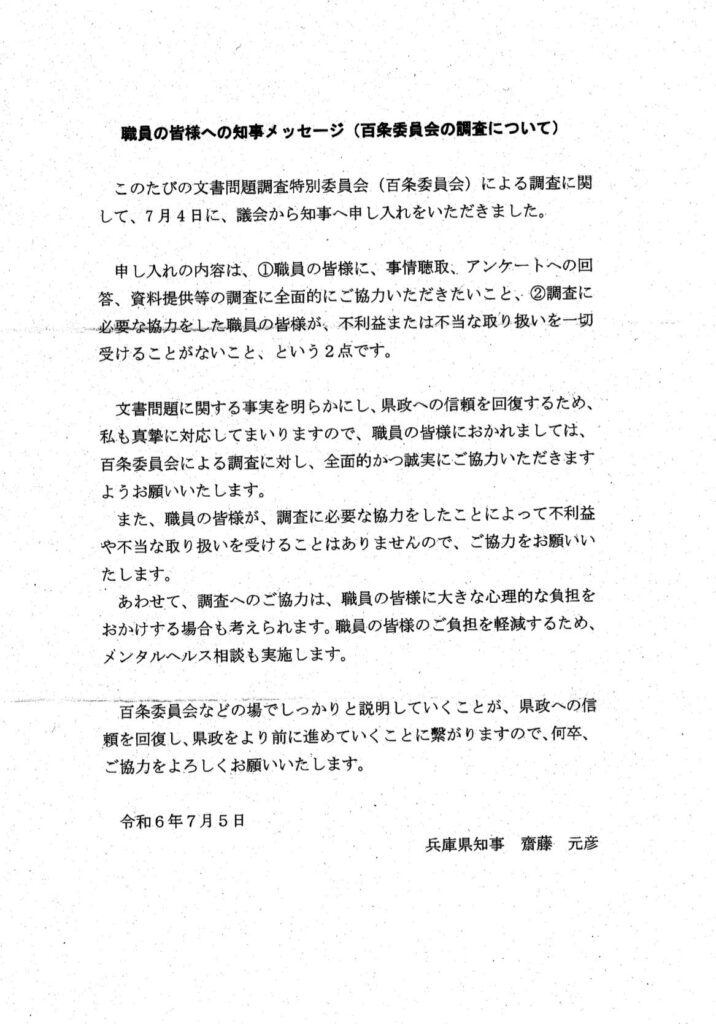 職員の皆様への知事メッセージ（百条委員会の調査について）
このたびの文書問題調査特別委員会（百条委員会）による調査に関
して、７月４日に、議会から知事へ申し入れをいただきました。
申し入れの内容は、①職員の皆様に、事情聴取、アンケートへの回
答、資料提供等の調査に全面的にご協力いただきたいこと、②調査に
必要な協力をした職員の皆様が、不利益または不当な取り扱いを一切
受けることがないこと、という２点です。
文書問題に関する事実を明らかにし、県政への信頼を回復するため、
私も真摯に対応してまいりますので、職員の皆様におかれましては、
百条委員会による調査に対し、全面的かつ誠実にご協力いただきます
ようお願いいたします。
また、職員の皆様が、調査に必要な協力をしたことによって不利益
や不当な取り扱いを受けることはありませんので、ご協力をお願いい
たします。
あわせて、調査へのご協力は、職員の皆様に大きな心理的な負担を
おかけする場合も考えられます。職員の皆様のご負担を軽減するため、
メンタルヘルス相談も実施します。
百条委員会などの場でしっかりと説明していくことが、県政への信
頼を回復し、県政をより前に進めていくことに繋がりますので、何卒、
ご協力をよろしくお願いいたします。
令和６年７月５日
兵庫県知事　齋藤　元彦